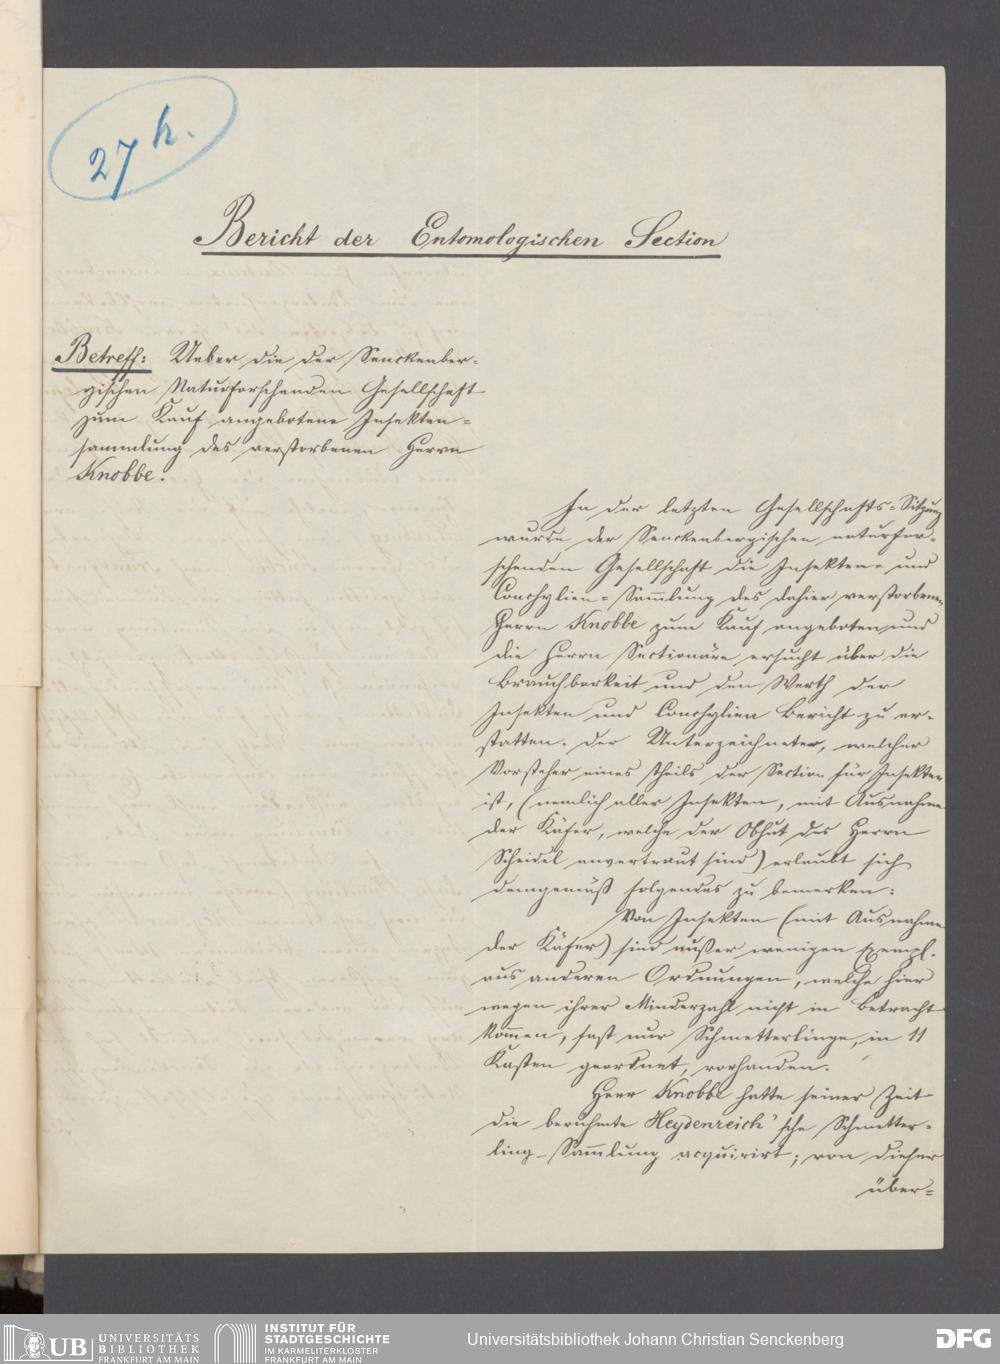 27 h.
Bericht der Entomologischen Section
Betreff: Ueber die der Senckenber-
gischen Naturforschenden Gesellschaft
zum Kauf angebotene Insekten-
sammlung des verstorbenen Herrn
Knobbe.
In der letzten Gesellschafts-Sitzung
wurde der Senckenbergischen naturfor-
schenden Gesellschaft die Insekten- und
Conchylien-Sam̅lung des dahier verstorbenen
Herrn Knobbe zum Kauf angeboten und
die Herrn Sectionäre ersucht über die
Brauchbarkeit und den Werth der
Insekten und Conchylien Bericht zu er-
statten. Der Unterzeichneter, welcher
Vorsteher eines theils der Section für Insekten
ist, (nemlich aller Insekten, mit Ausnahme
der Käfer, welche der Obhut des Herrn
Scheidel anvertraut sind) erlaubt sich
demgemäß folgendes zu bemerken:
Von Insekten (mit Ausnahme
der Käfer) sind außer wenigen Exempl.
aus anderen Ordnungen, welche hier
wegen ihrer Minderzahl nicht in Betracht
kom̅en, fast nur Schmetterlinge, in 11
Kasten geordnet, vorhanden.
Herr Knobbe hatte seiner Zeit
die berühmte Heydenreich'sche Schmetter-
ling-Sam̅lung acquirirt; von dieser
über-
UB UNIVERSITÄTS
BIBLIOTHEK
FRANKFURT AM MAIN
INSTITUT FÜR
STADTGESCHICHTE
IM KARMELITERKLOSTER
FRANKFURT AM MAIN
Universitätsbibliothek Johann Christian Senckenberg
DFG